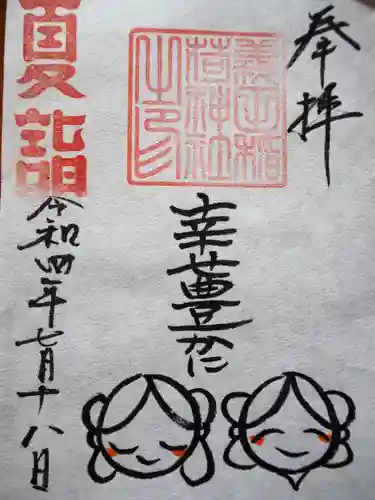 奉拝
義田稲
荷神社
之印
幸豊かに
夏詣
令和四年七月十八日